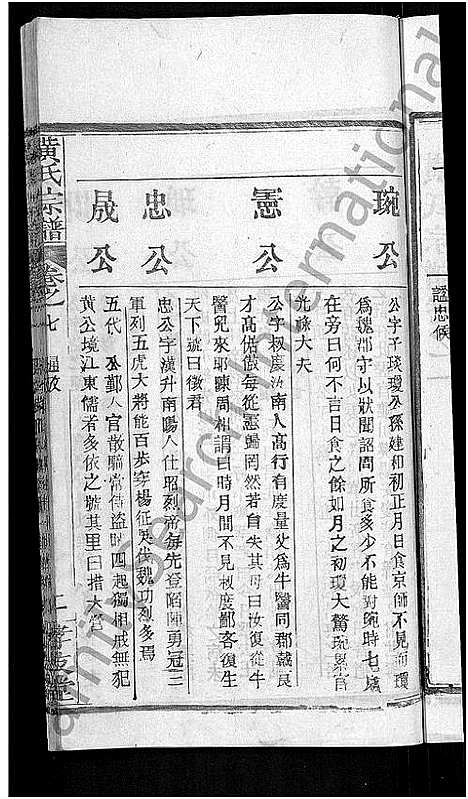 諡忠候
琬公
公字子琰瓊公孫建和初正月日食京師不見而瓊
為魏郡守以狀聞詔問所食多少不能對琬時七歲
在旁曰何不言日食之餘如月之初瓊大驚琬累官
光祿大夫
憲公
公字叔慶汝南人高行有度量父為牛醫同郡戴良
才高倨傲每從憲歸罔然若自失其母曰汝復從牛
醫兒來耶陳周相謂曰時月間不見叔度鄙客復生
天下號曰徵君
忠公
忠公字漢升南陽人仕昭烈帝每先登陷陣勇冠三
軍列五虎大將能百步穿楊征吳伐魏功烈多焉
晟公
五代 公鄞人官散騎常侍盜時四起獨相戒無犯
黃公境江東儒者多依之號其里曰措大營
黃氏宗譜
卷之七
孝友堂
Family Search International